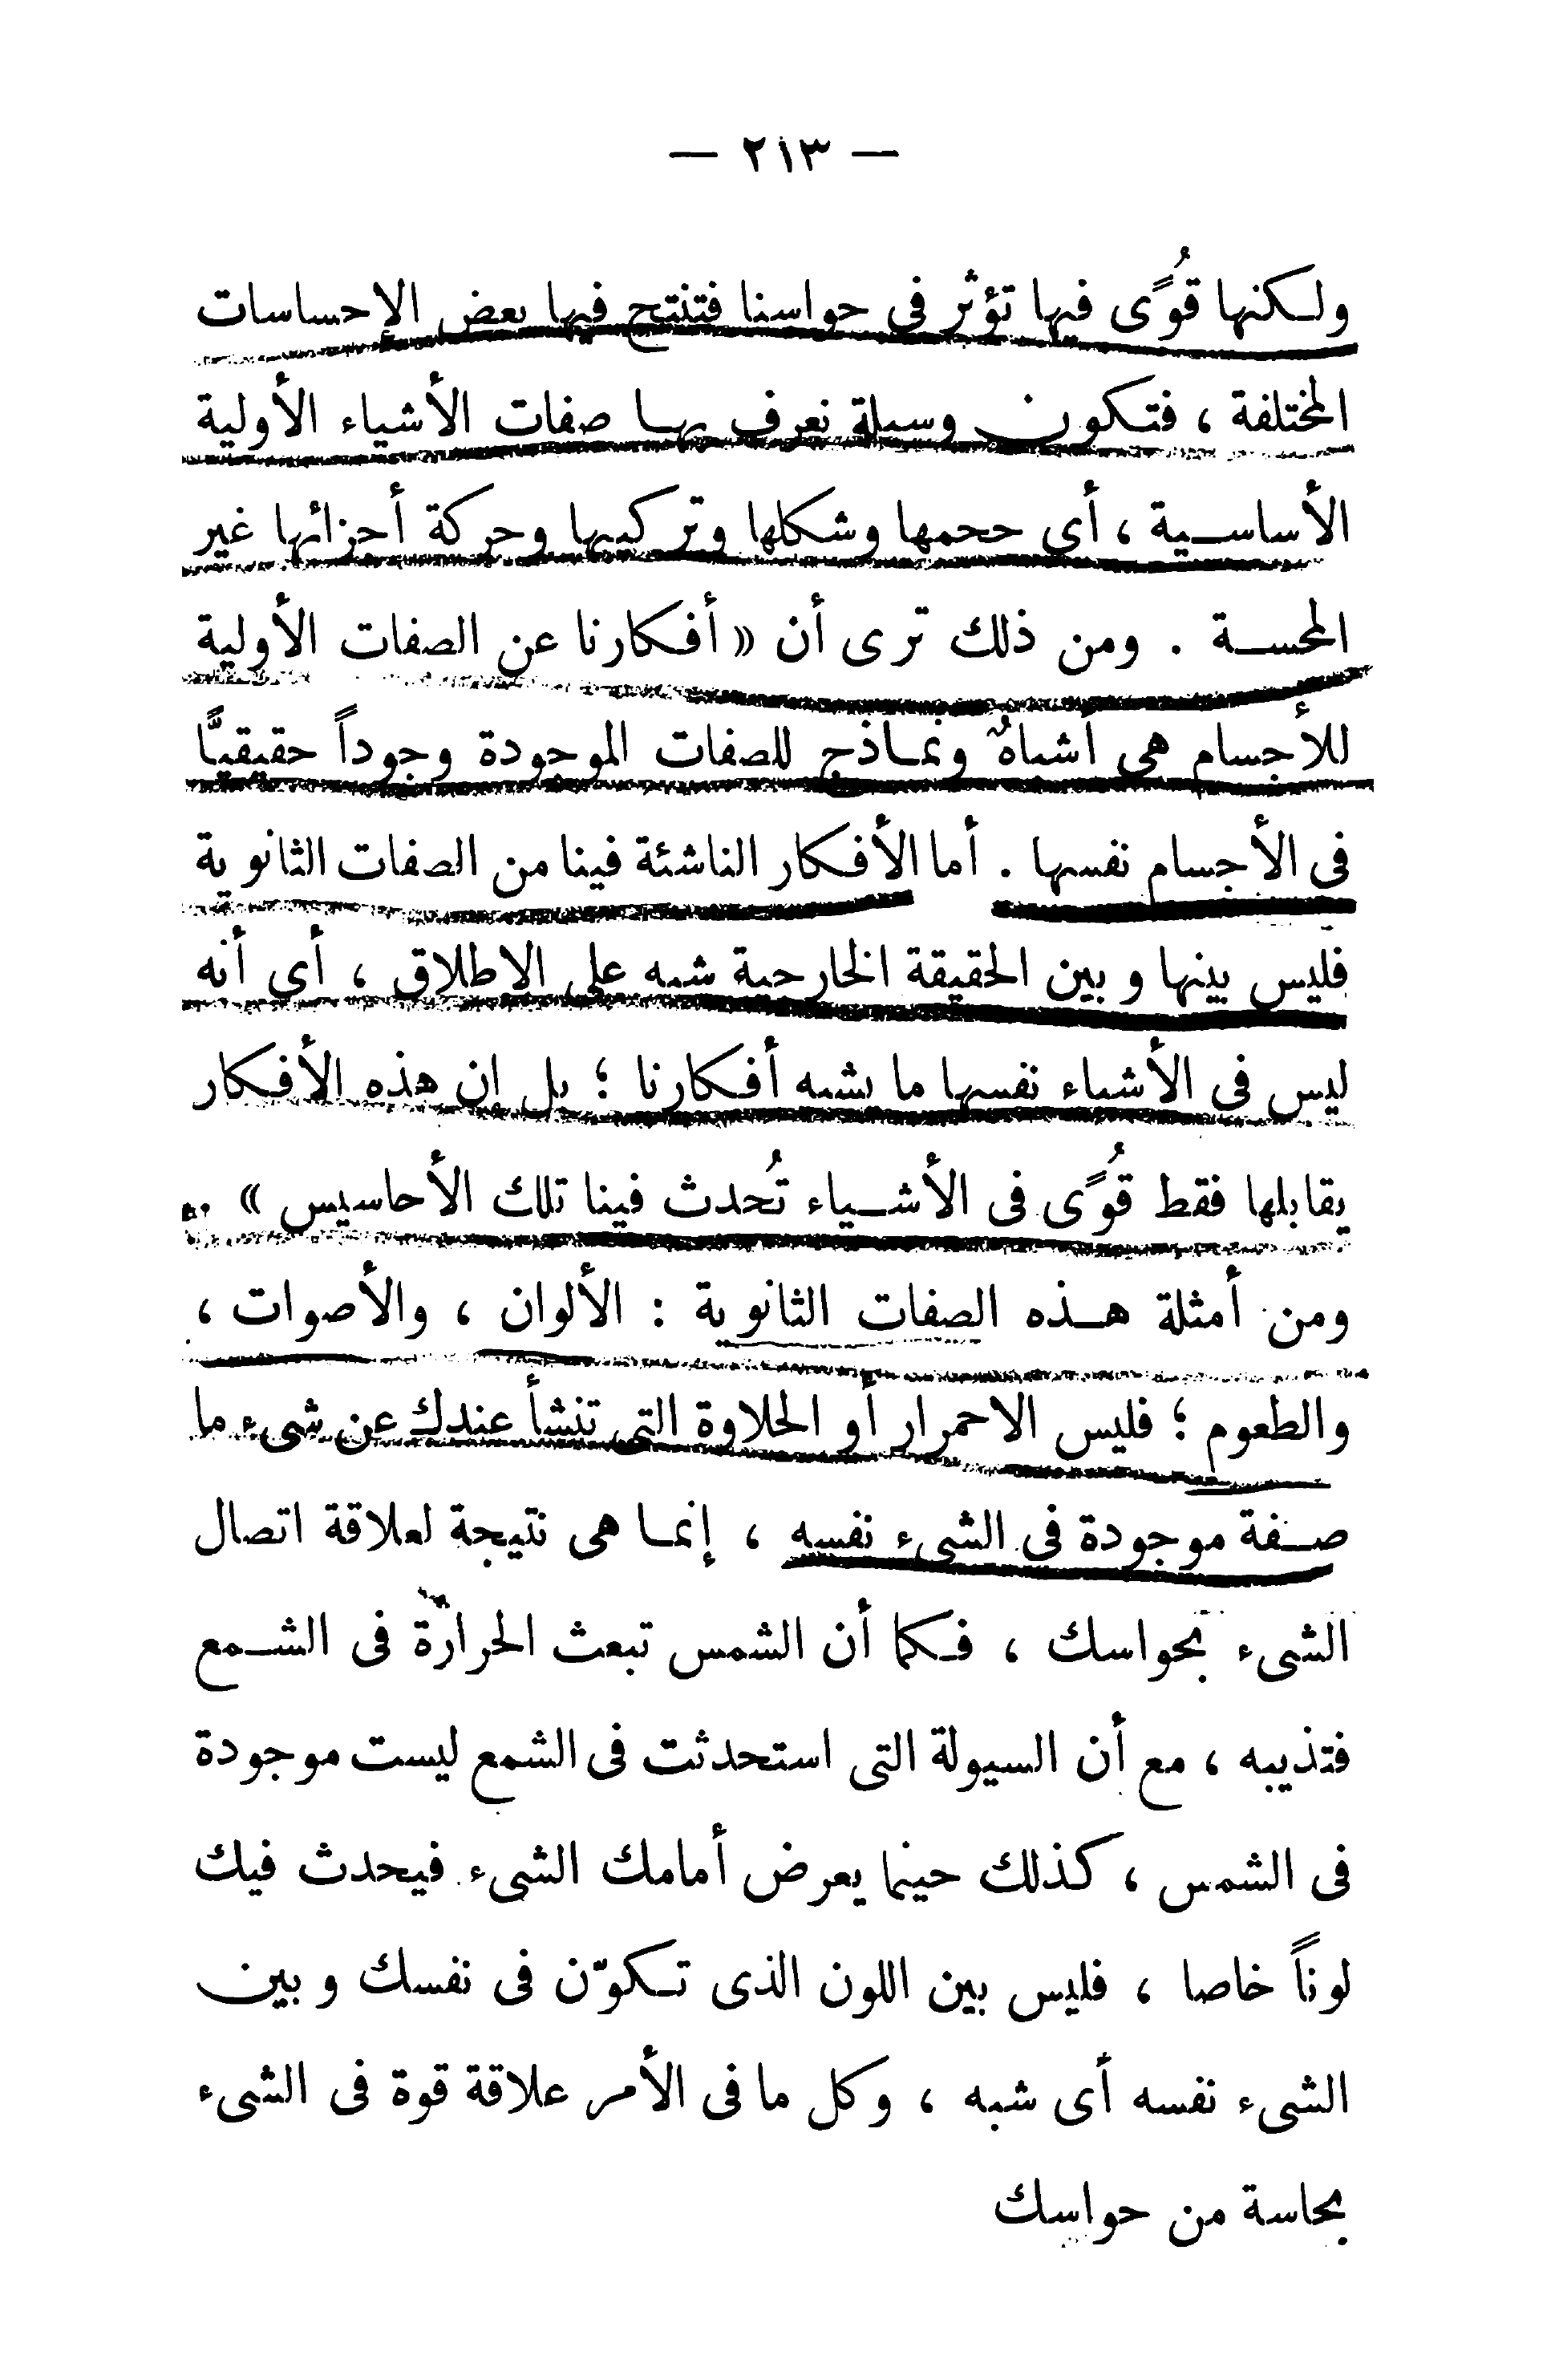 — ٢١٣ —
ولكنها قُوًى فيها تؤثر فى حواسنا فتنتج فيها بعض الإحساسات
المختلفة ، فتكون وسيلة نعرف بها صفات الأشياء الأولية
الأساسية ، أى حجمها وشكلها وتركيبها وحركة أجزائها غير
المحسة . ومن ذلك ترى أن « أفكارنا عن الصفات الأولية
للأجسام هى أشباهٌ ونماذج للصفات الموجودة وجوداً حقيقيًّا
فى الأجسام نفسها . أما الأفكار الناشئة فينا من الصفات الثانوية
فليس بينها وبين الحقيقة الخارجية شبه على الإطلاق ، أى أنه
ليس فى الأشياء نفسها ما يشبه أفكارنا ؛ بل إن هذه الأفكار
يقابلها فقط قُوًى فى الأشياء تُحدث فينا تلك الأحاسيس » ..
ومن أمثلة هذه الصفات الثانوية : الألوان ، والأصوات ،
والطعوم ؛ فليس الاحمرار أو الحلاوة التى تنشأ عندك عن شىء ما
صفة موجودة فى الشىء نفسه ، إنما هى نتيجة لعلاقة اتصال
الشىء بحواسك ، فكما أن الشمس تبعث الحرارة فى الشمع
فتذيبه ، مع أن السيولة التى استحدثت فى الشمع ليست موجودة
فى الشمس ، كذلك حينما يعرض أمامك الشىء فيحدث فيك
لوناً خاصا ، فليس بين اللون الذى تكوّن فى نفسك وبين
الشىء نفسه أى شبه ، وكل ما فى الأمر علاقة قوة فى الشىء
بحاسة من حواسك